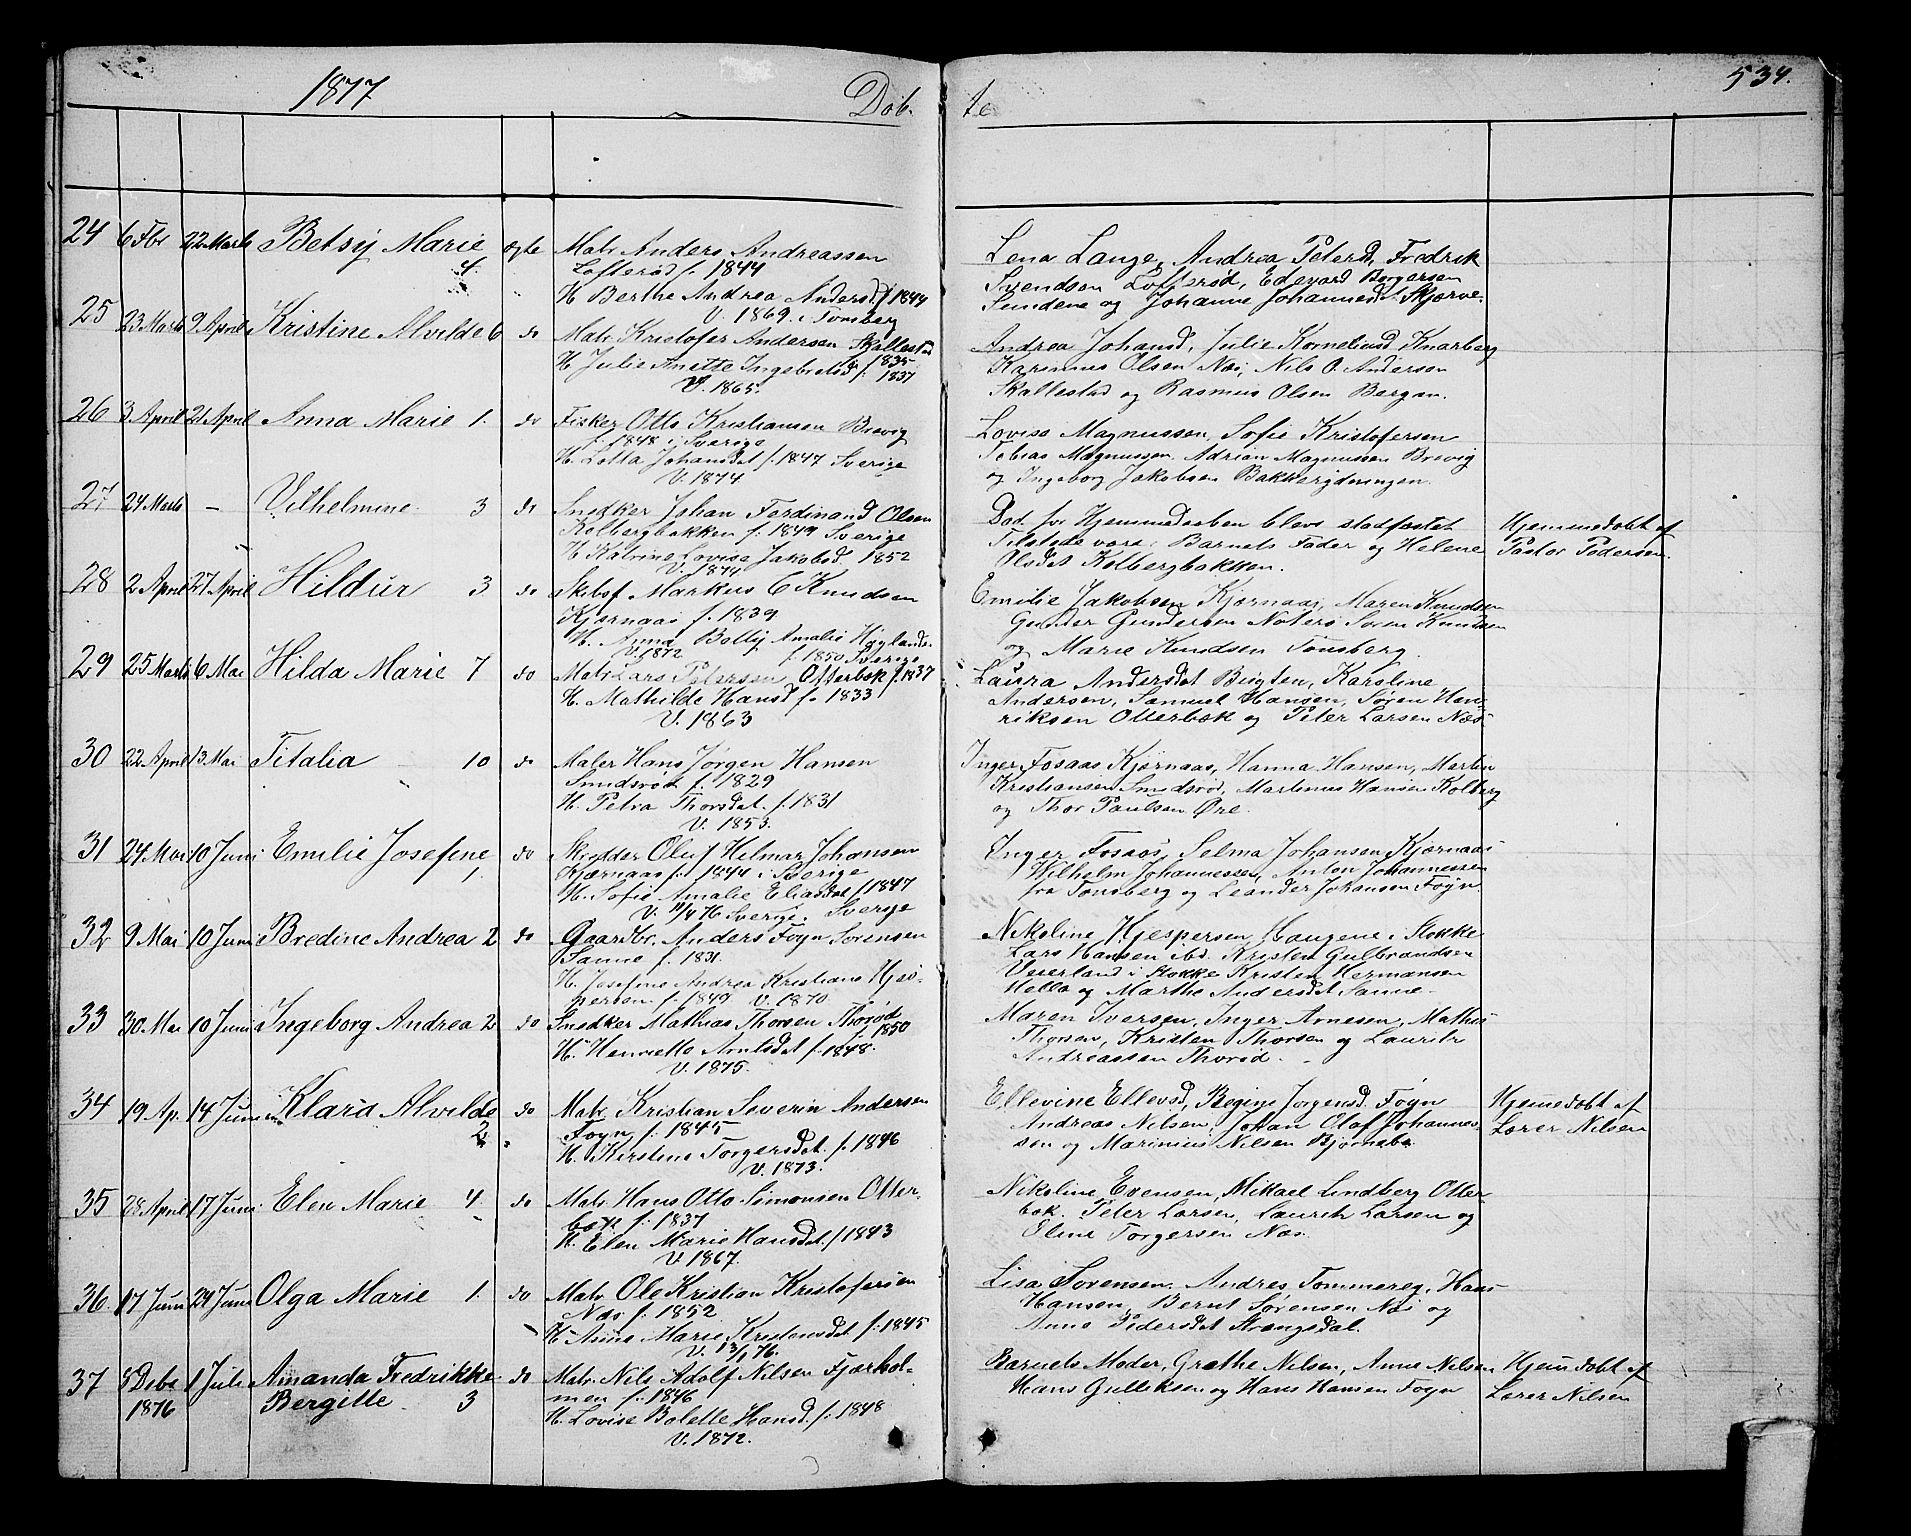 1877
Døb
te
534.
24 6 Fbr 22 Marts Betsy Marie 4. ægte Matr Anders Andreassen
Lofterød f. 1844
H Berthe Andrea Andersd f 1844
V. 1869 i Tønsberg
Lena Lange, Andrea Petersd, Fredrik
Svendsen Lofterød, Edevard Borgersen
Sundene og Johanne Johannesdt Skjærve.
25 23 Marts 9 April Kristine Alvilde 6 do Matr Kristofer Andersen Skallestad
f 1835
H Julie Anette Ingebretsd f. 1837
V. 1865.
Andrea Johansd, Julie Korneliusd Knarberg
Karinius Olsen Næs, Nils O. Andersen
Skallestad og Rasmus Olsen Bergan.
26 3 April 21 April Anna Marie 1. do Fisker Otto Kristiansen Brevig
f. 1848 i Sverige
H. Lotta Johansdet f. 1847 Sverige
V. 1874
Lovise Magnussen, Sofie Kristofersen
Tobias Magnussen, Adrian Magnussen Brevig
og Ingeborg Jakobsen Bakkerydningen.
27 24 Marts - Vilhelmine 3 do Snedker Johan Ferdinand Olsen
Kolbergbakken f. 1849 Sverige
H Katrine Lovise Jakobsd. 1852
V. 1874
Død før Hjemmedaaben blev stadfæstet
Tilstede vare: Barnets Fader og Helene
Olsdet Kolbergbakken.
Hjemmedøbt af
Pastor Pedersen.
28 2 April 27 April Hildur 3 do Skibsf. Markus C Knudsen
Kjærnaas f. 1839
H. Anna Bolly Amalie Høglands-
V. 1872 f. 1850 Sverige
Emilie Jakobsen Kjærnaas, Maren Knudsen
Gunder Gundersen Nøterø Søren Knudsen
og Marie Knudsen Tønsberg.
29 25 Marts 6 Mai Hilda Marie 7 do Matr Lars Petersen Otterbek f. 1837
H. Mathilde Hansd f. 1833
V. 1863
Laura Andersdet Bugten, Karoline
Andersen, Samuel Hansen, Søren Hen-
riksen Otterbæk og Peter Larsen Næs
30 22 April 13 Mai Titalia 10 do Maler Hans Jørgen Hansen
Smidsrød f. 1829
H. Petra Thorsdet. f. 1831
V. 1853.
Inger Fosaas Kjærnaas, Hanna Hansen, Martin
Kristiansen Smidsrød, Martinus Hansen Kolberg
og Thor Paulsen Øre.
31 24 Mai 10 Juni Emilie Josefine 1 do Skrædder Oluf Hilmar Johansen
Kjærnaas f. 1844 i Sverige
H. Sofie Amalie Eliasdat f 1847
V. 11/4 76 Sverige. Sverige
Inger Fosaas, Selma Johansen Kjærnaas
Wilhelm Johannessen, Anton Johannessen
fra Tønsberg og Leander Johansen Føyn.
32 9 Mai 10 Juni Bredine Andrea 2 do Gaardbr. Anders Foyn Sørensen
Sanne f. 1831.
H. Josefine Andrea Kristiane Hjes-
persen. f. 1849 V. 1870
Nikoline Hjespersen Haugene i Stokke
Lars Hansen ibd. Kristen Gulbrandsen
Veierland i Stokke Kristen Hermansen
Hella og Marthe Andersdet Sanne.
33 30 Mai 10 Juni Ingeborg Andrea 2 do Snedker Mathias Thorsen Thorød
f. 1850
H. Henriette Arntsdet f. 1848.
V. 1875.
Maren Iversen, Inger Arnesen, Mathis
Thorsen, Kristen Thorsen og Lauritz
Andreassen Thorød.
34 19 Ap. 14 Juni Klara Alvilde 2 do Matr Kristian Severin Andersen
Foyn f. 1845
H. Kirstine Torgersdet. f. 1846
V. 1873.
Ellevine Ellevsd, Regine Jørgensd. Foyn
Andreas Nilsen, Johan Olaf Johannes-
sen og Marinius Nilsen Bjørnebu
Hjemedøbt af
Lærer Nilsen
35 28 April 17 Juni Elen Marie 4. do Matr Hans Otto Simonsen Otter-
bæk f. 1837
H. Elen Marie Hansdet. f 1843
V. 1867.
Nikoline Evensen, Mikael Lindberg Otter-
bæk. Peter Larsen, Lauritz Larsen og
Eline Torgersen Næs.
36. 17 Juni 24 Juni Olga Marie 1. do Matr Ole Kristian Kristofersen
Næs f. 1852
H. Anne Marie Kristensdet f. 1845
V. 13/1 76.
Lisa Sørensen, Andres Tommereg, Hans
Hansen, Bernt Sørensen Næs og
Anne Pedersdet Strengsdal.
37 8 Debr 1876 1 Juli Amanda Fredrikke
Bergitte 3 do Matr Nils Adolf Nilsen Fjærhol-
men f. 1846
H. Lovise Bolette Hansd. f. 1848
V. 1872.
Barnets Moder, Grethe Nilsen, Anne Nilsen
Hans Gulliksen og Hans Hansen Foyn
Hjemdøbt af
Lærer Nilsen